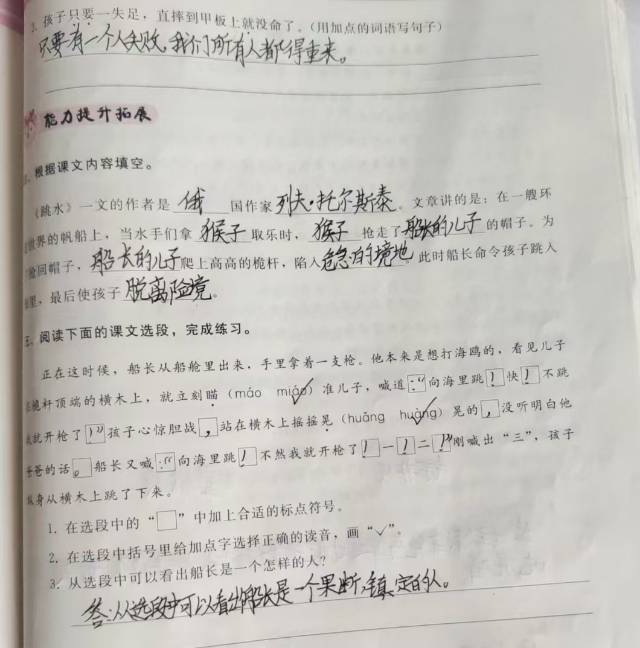 3. 孩子只要一失足，直摔到甲板上就没命了。(用加点的词语写句子)
只要有一个人失败，我们所有人都得重来。
能力提升拓展
根据课文内容填空。
《跳水》一文的作者是 俄 国作家 列夫·托尔斯泰。文章讲的是：在一艘环
世界的帆船上，当水手们拿 猴子 取乐时，猴子 抢走了 船长的儿子 的帽子。为
抢回帽子，船长的儿子 爬上高高的桅杆，陷入 危急的境地。此时船长命令孩子跳入
里，最后使孩子 脱离险境。
三、阅读下面的课文选段，完成练习。
正在这时候，船长从船舱里出来，手里拿着一支枪。他本来是想打海鸥的，看见儿子
桅杆顶端的横木上，就立刻瞄（máo miáo✓）准儿子，喊道：“向海里跳！快！不跳
我就开枪了！”孩子心惊胆战，站在横木上摇摇晃（huāng huàng✓）晃的，没听明白他
爸爸的话。船长又喊：“向海里跳！不然我就开枪了！一！二！”刚喊出“三”，孩子
纵身从横木上跳了下来。
1. 在选段中的“□”中加上合适的标点符号。
2. 在选段中括号里给加点字选择正确的读音，画“✓”。
3. 从选段中可以看出船长是一个怎样的人？
答：从选段中可以看出船长是一个果断、镇定的人。